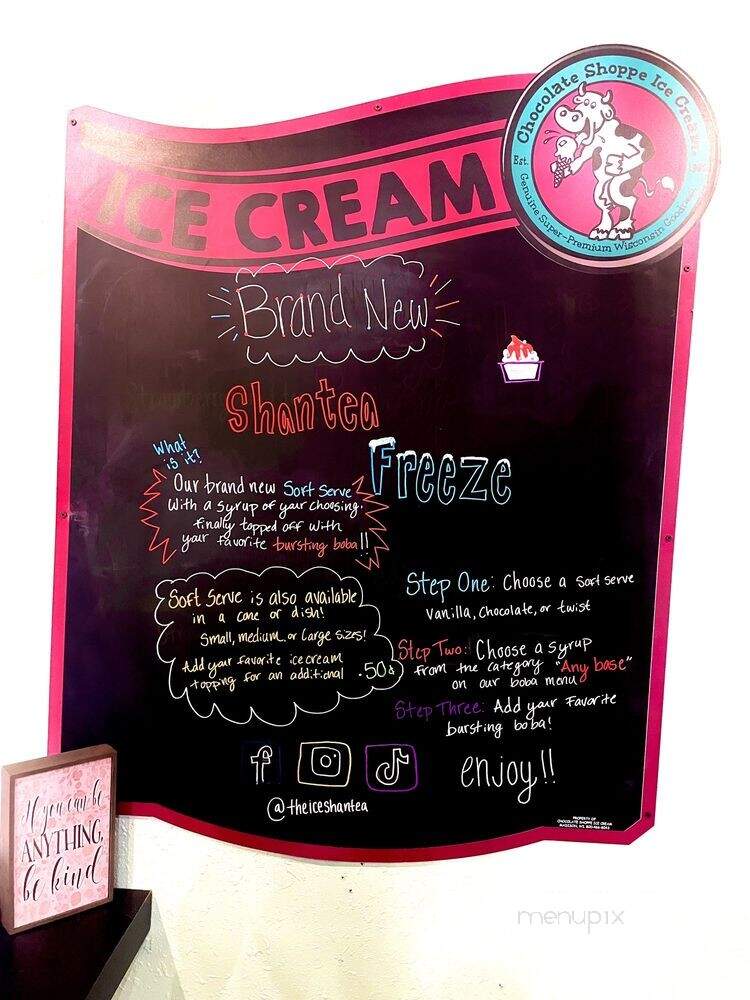 Chocolate Shoppe Ice Cream
Est.
Genuine Super-Premium Wisconsin Goodness
ICE CREAM
Brand New
Shantea
Freeze
What
is it?
Our brand new Soft Serve
With a syrup of your choosing.
finally topped off with
your favorite bursting boba!!
Soft Serve is also available
in a cone or dish!
Small, medium, or Large sizes!
Add your favorite ice cream
topping for an additional .50¢
Step One: Choose a Soft serve
vanilla, chocolate, or twist
Step Two: Choose a syrup
From the category "Any base"
on our boba menu
Step Three: Add your Favorite
bursting boba!
enjoy!!
@theiceshantea
PROPERTY OF
CHOCOLATE SHOPPE ICE CREAM
If you can be
ANYTHING,
be kind
menupix